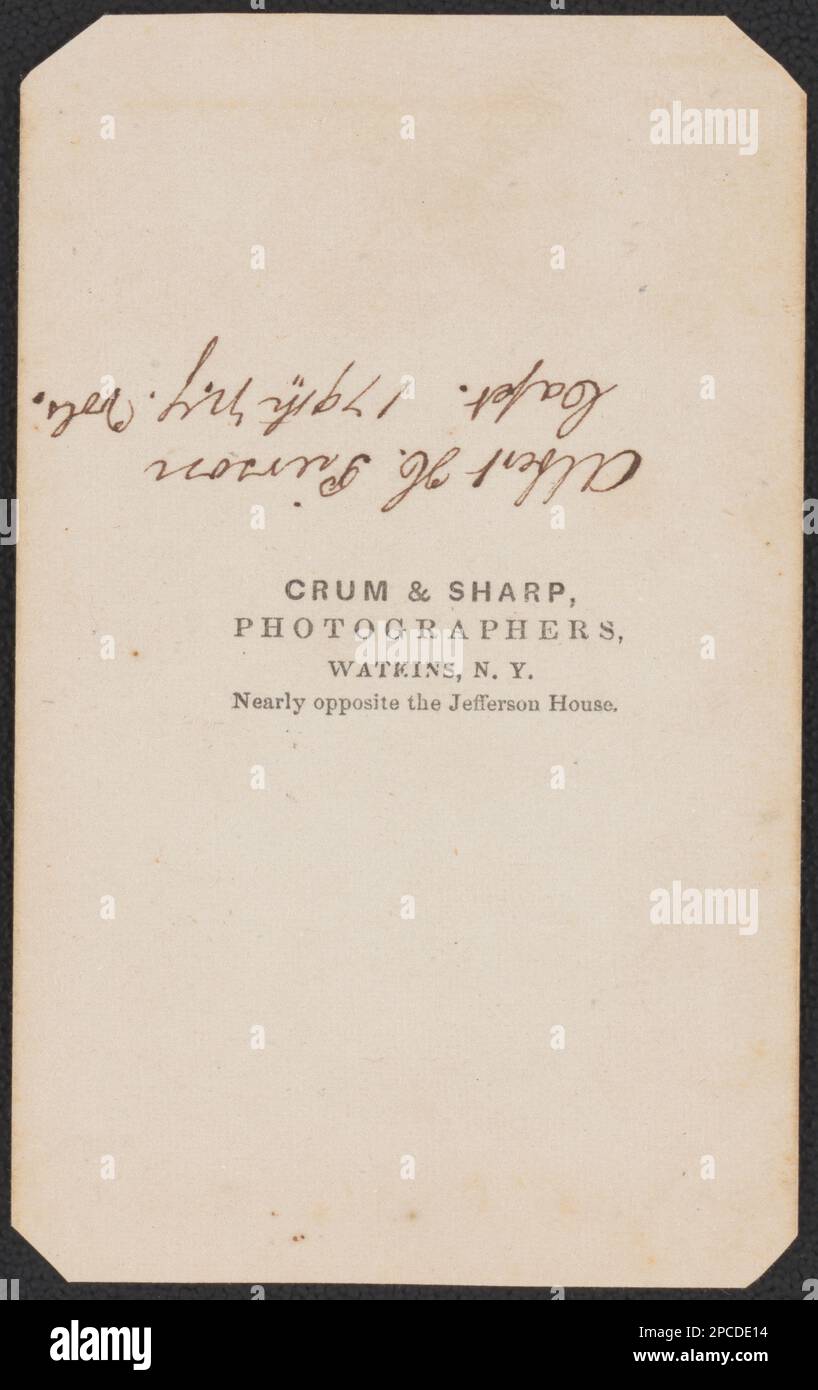 alamy
Albert H. Pierson
Capt. 179th N.Y. Vols.
CRUM & SHARP,
PHOTOGRAPHERS,
WATKINS, N. Y.
Nearly opposite the Jefferson House.
alamy
alamy
Image ID: 2PCDE14
www.alamy.com